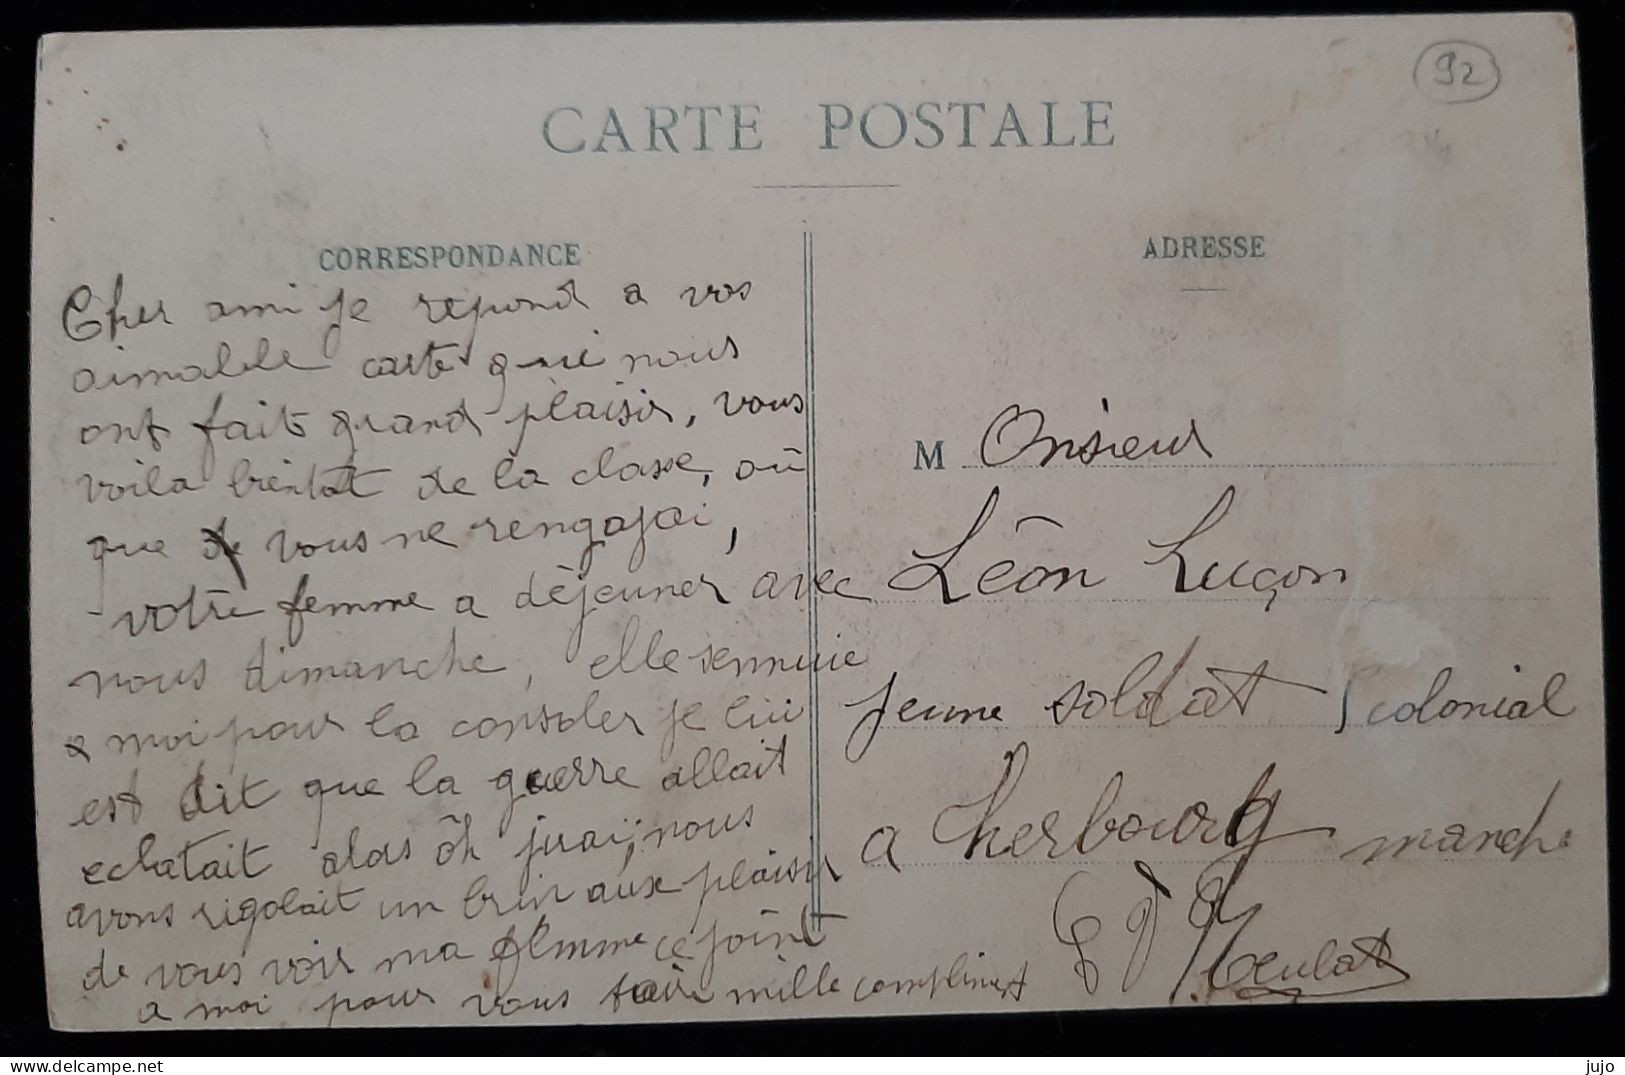 92
CARTE POSTALE
CORRESPONDANCE
Cher ami je repond a vos
aimable carte qui nous
ont fait grand plaisir, vous
voila bientot de la classe, où
que vous ne rengajai,
votre femme a déjeuner avec
nous dimanche, elle sennuie
a moi pour la consoler je lui
est dit que la guerre allait
eclatait alors ôh juaï, nous
avons rigolait un brin aux plaisir
de vous voir ma femme ce joint
a moi pour vous faire mille compliment
ADRESSE
M Onsieur
Léon Luçon
jeune soldat colonial
a Cherbourg manche
jujo